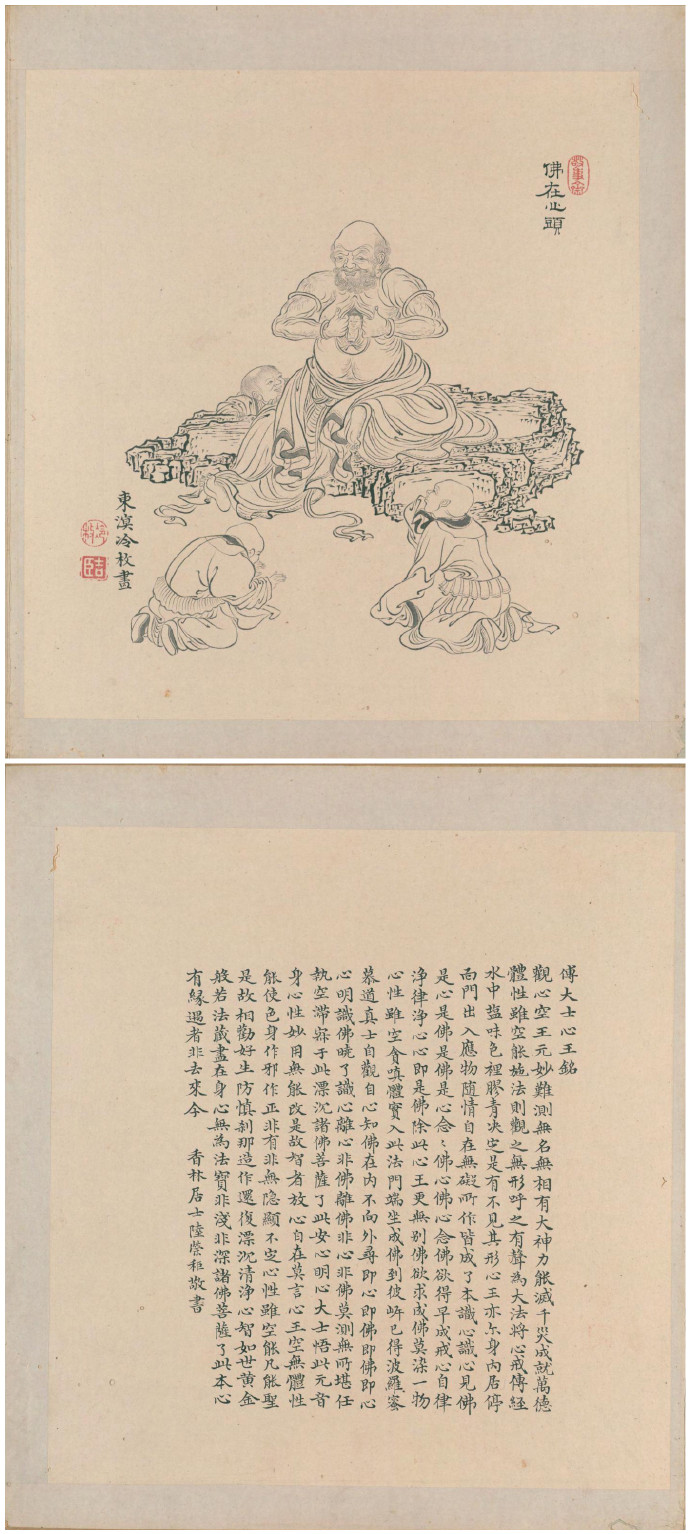 佛在心頭
東溟冷枚畫
冷枚
吉臣
傅大士心王銘
觀心空王元妙難測無名無相有大神力能滅千災成就萬德
體性雖空能施法則觀之無形呼之有聲為大法將心戒傳經
水中鹽味色裡膠青决定是有不見其形心王亦尔身內居停
面門出入應物随情自在無礙所作皆成了本識心識心見佛
是心是佛是佛是心念〻佛心佛心念佛欲得早成戒心自律
淨律淨心心即是佛除此心王更無別佛欲求成佛莫染一物
心性雖空貪嗔體實入此法門端坐成佛到彼岸已得波羅蜜
慕道真士自觀自心知佛在內不向外尋即心即佛即佛即心
心明識佛曉了識心離心非佛離佛非心非佛莫測無所堪任
執空滯寂于此漂沉諸佛菩薩了此安心明心大士悟此元音
身心性妙用無能改是故智者放心自在莫言心王空無體性
能使色身作邪作正非有非無隐顯不定心性雖空能凡能聖
是故相勸好生防慎剎那造作還復漂沉清淨心智如世黃金
般若法藏盡在身心無為法寶非淺非深諸佛菩薩了此本心
有緣遇者非去來今 香林居士陸榮秬敬書